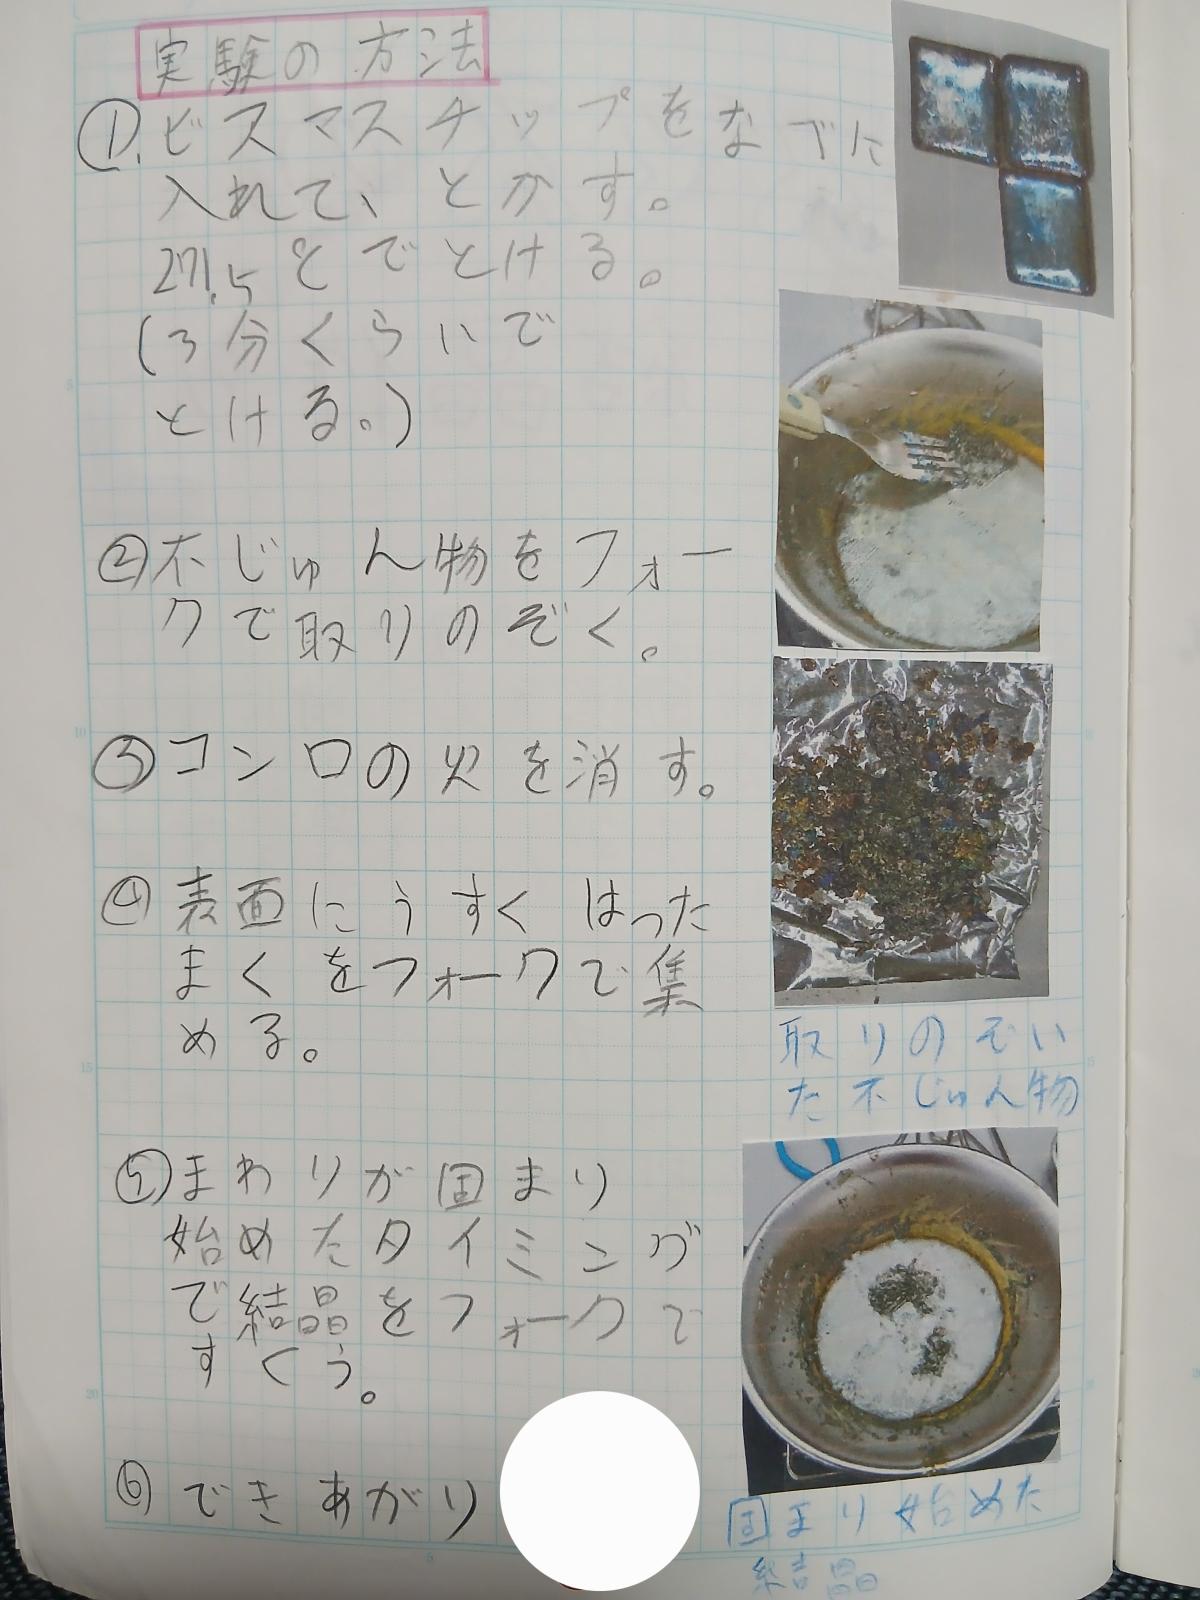 実験の方法
①.ビスマスチップをなべに
入れて、とかす。
271.5℃でとける。
(3分くらいで
とける。)
②不じゅん物をフォー
クで取りのぞく。
③コンロの火を消す。
④表面にうすくはった
まくをフォークで集
める。
取りのぞい
た不じゅん物
⑤まわりが固まり
始めたタイミング
で結晶をフォークで
すくう。
⑥できあがり
固まり始めた
結晶